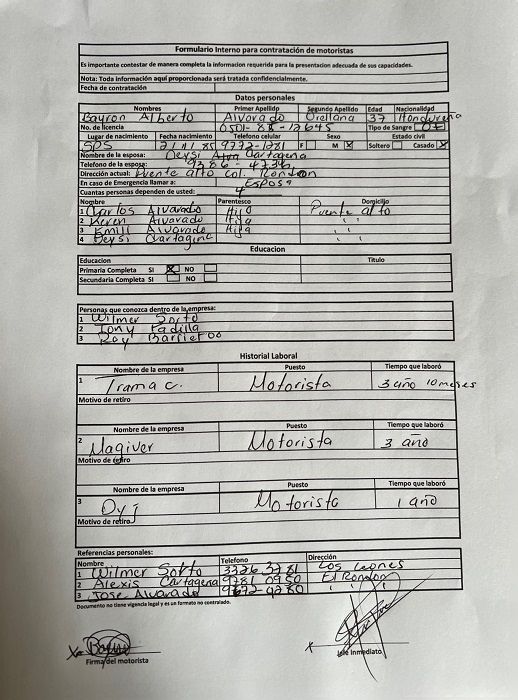 Formulario Interno para contratación de motoristas
Es importante contestar de manera completa la informacion requerida para la presentacion adecuada de sus capacidades.
Nota: Toda información aquí proporcionada será tratada confidencialmente.
Fecha de contratación
Datos personales
Nombres Primer Apellido Segundo Apellido Edad Nacionalidad
Bayron Alberto Alvarado Orellana 37 Hondureña
No. de licencia 0501-85-12645 Tipo de Sangre
Lugar de nacimiento Fecha nacimiento Telefono celular Sexo Estado civil
SPS 21 11 85 9772-1281 F M X Soltero Casado X
Nombre de la esposa: Deysi Cartagena
Telefono de la esposa: 9386-4736
Dirección actual: Puente alto Col. Rondon
En caso de Emergencia llamar a: Esposa
Cuantas personas dependen de usted: 4
Nombre Parentesco Domicilio
1 Carlos Alvarado Hijo Puente alto
2 Keren Alvarado Hija " "
3 Emill Alvarado Hija " "
4 Deysi Cartagine
Educacion
Educacion Titulo
Primaria Completa SI X NO
Secundaria Completa SI NO
Personas que conozca dentro de la empresa:
1 Wilmer Sorto
2 Tony Padilla
3 Roy
Historial Laboral
Nombre de la empresa Puesto Tiempo que laboró
1 Trama c. Motorista 3 año 10 meses
Motivo de retiro
Nombre de la empresa Puesto Tiempo que laboró
2 Magiver Motorista 3 año
Motivo de retiro
Nombre de la empresa Puesto Tiempo que laboró
3 Motorista 1 año
Motivo de retiro
Referencias personales:
Nombre Telefono Dirección
1 Wilmer Sorto 3326 3781 Los Leones
2 Alexis Cartagena 9781 0950 El Rondon
3 Jose Alvarado 9672-0280 " "
Documento no tiene vigencia legal y es un formato no controlado.
X
Firma del motorista
X
Jefe Inmediato